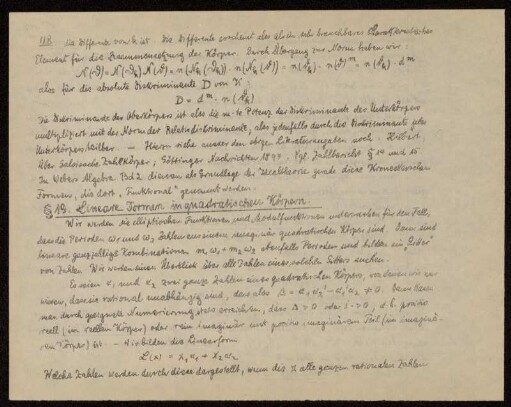 die Differente von k ist. Die Differente erscheint also als ein sehr brauchbares charakteristisches
Element für die Zusammensetzung der Körper. Durch Übergang zur Norm haben wir:
also für die absolute Diskriminante D von K:
D = d^m . n(
Die Diskriminante des Oberkörpers ist also die m-te Potenz der Diskriminante des Unterkörpers
multipliziert mit der Norm der Relativdiskriminante, also jedenfalls durch die Diskriminante des
Unterkörpers teilbar. — Hierzu siehe ausser den obigen Literaturangaben noch: Hilbert,
Über Galoissche Zahlkörper, Göttinger Nachrichten 1894. Vgl. Zahlbericht § 14 und 15
In Webers Algebra Bd 2 dienen als Grundlage der Idealtheorie gerade diese Kroneckerschen
Formen, die dort „Funktionale" genannt werden.
§ 19. Lineare Formen in quadratischen Körpern.
Wir werden die elliptischen Funktionen und Modulfunktionen untersuchen für den Fall,
dass die Perioden ω₁ und ω₂ Zahlen aus einem imaginär quadratischen Körper sind. Dann sind
lineare ganzzahlige Kombinationen m₁ω₁ + m₂ω₂ ebenfalls Perioden und bilden ein Gitter
von Zahlen. Wir wollen einen Überblick über alle Zahlen eines solchen Gitters suchen.
Es seien α₁ und α₂ zwei ganze Zahlen eines quadratischen Körpers, von denen wir nur
wissen, dass sie rational unabhängig sind, dass also Δ = α₁α₂' - α₁'α₂ ≠ 0. Dann kann
man durch geeignete Numerierung stets erreichen, dass Δ > 0 oder i > 0, d.h. positiv
reell (im reellen Körper) oder rein imaginär mit positiv imaginärem Teil (im imaginä-
ren Körper) ist. — Wir bilden die Linearform
L(x) = x₁α₁ + x₂α₂
Welche Zahlen werden durch diese dargestellt, wenn die x alle ganzen rationalen Zahlen